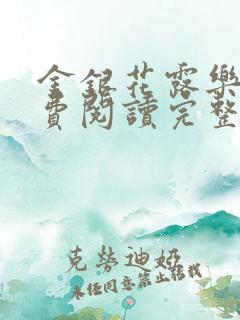 金銀花露樂
費閱讀完整
克勞迪婭
未經同意禁止轉載